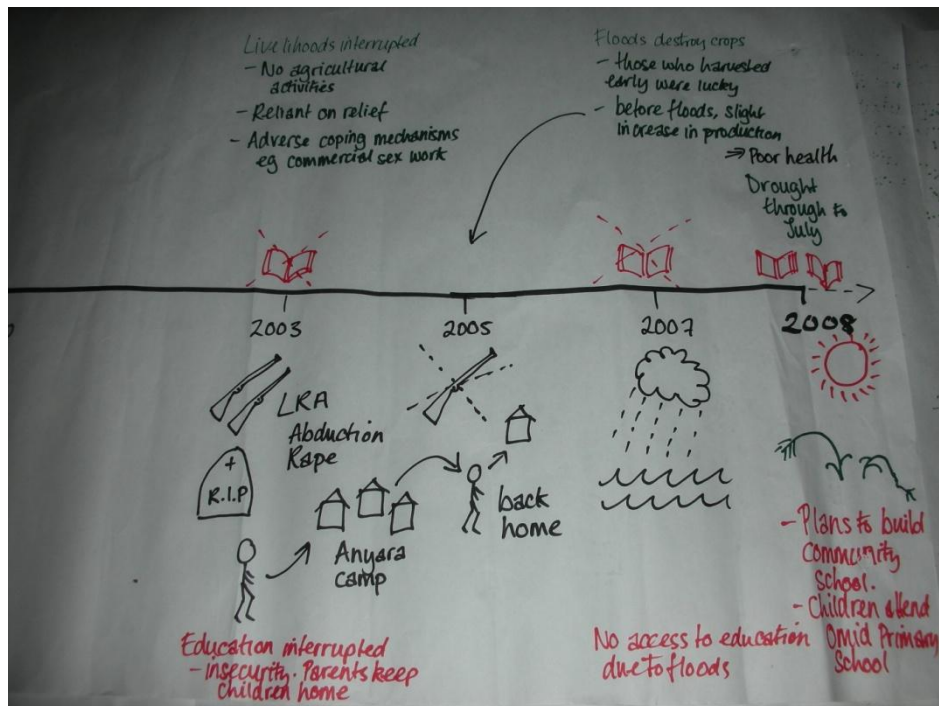 Livelihoods interrupted
- No agricultural
activities
- Reliant on relief
- Adverse coping mechanisms
eg commercial sex work
Floods destroy crops
- those who harvested
early were lucky
- before floods, slight
increase in production
⇒ Poor health
Drought
through to
July
2003
2005
2007
2008
LRA
Abduction
Rape
+
R.I.P
Anyara
camp
back
home
Education interrupted
- insecurity. Parents keep
children home
No access to education
due to floods
- Plans to build
community
school.
- Children attend
Omid Primary
School